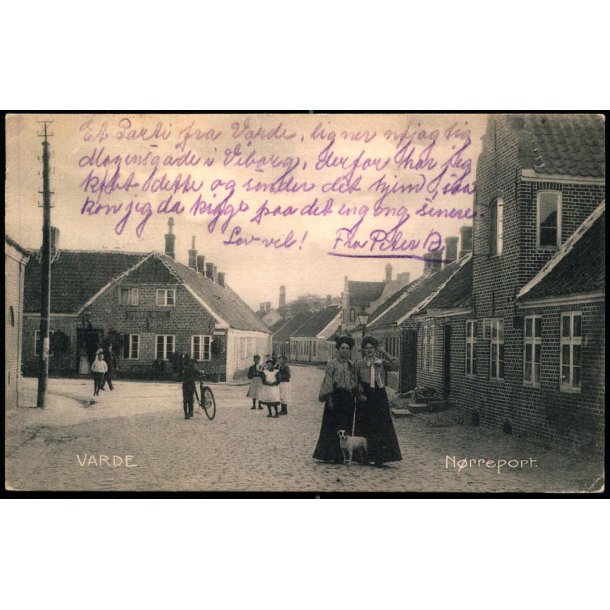 Et Parti fra Varde, ligner nøjagtig
Mogensgade i Viborg, derfor har jeg
købt dette og sender det hjem, saa
kan jeg da kigge paa det engang senere.
Lev vel! Fra Peter B.
VARDE
Nørreport.